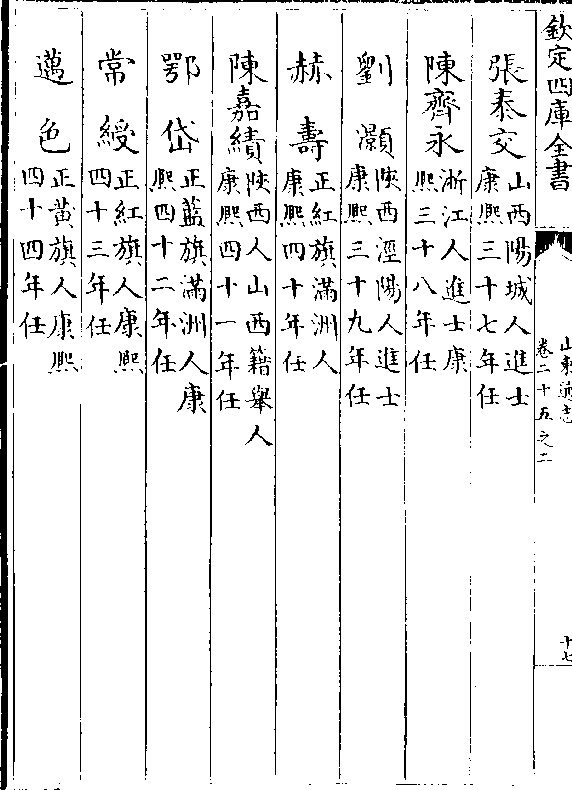 欽定四庫全書
山東通志
卷二十五之二
十七
張泰交山西陽城人進士康熙三十七年任
陳齊永浙江人進士康熙三十八年任
劉灝陝西涇陽人進士康熙三十九年任
赫壽正紅旗滿洲人康熙四十年任
陳嘉績陝西人山西籍舉人康熙四十一年任
鄂岱正藍旗滿洲人康熙四十二年任
常綬正紅旗人康熙四十三年任
邁色正黃旗人康熙四十四年任